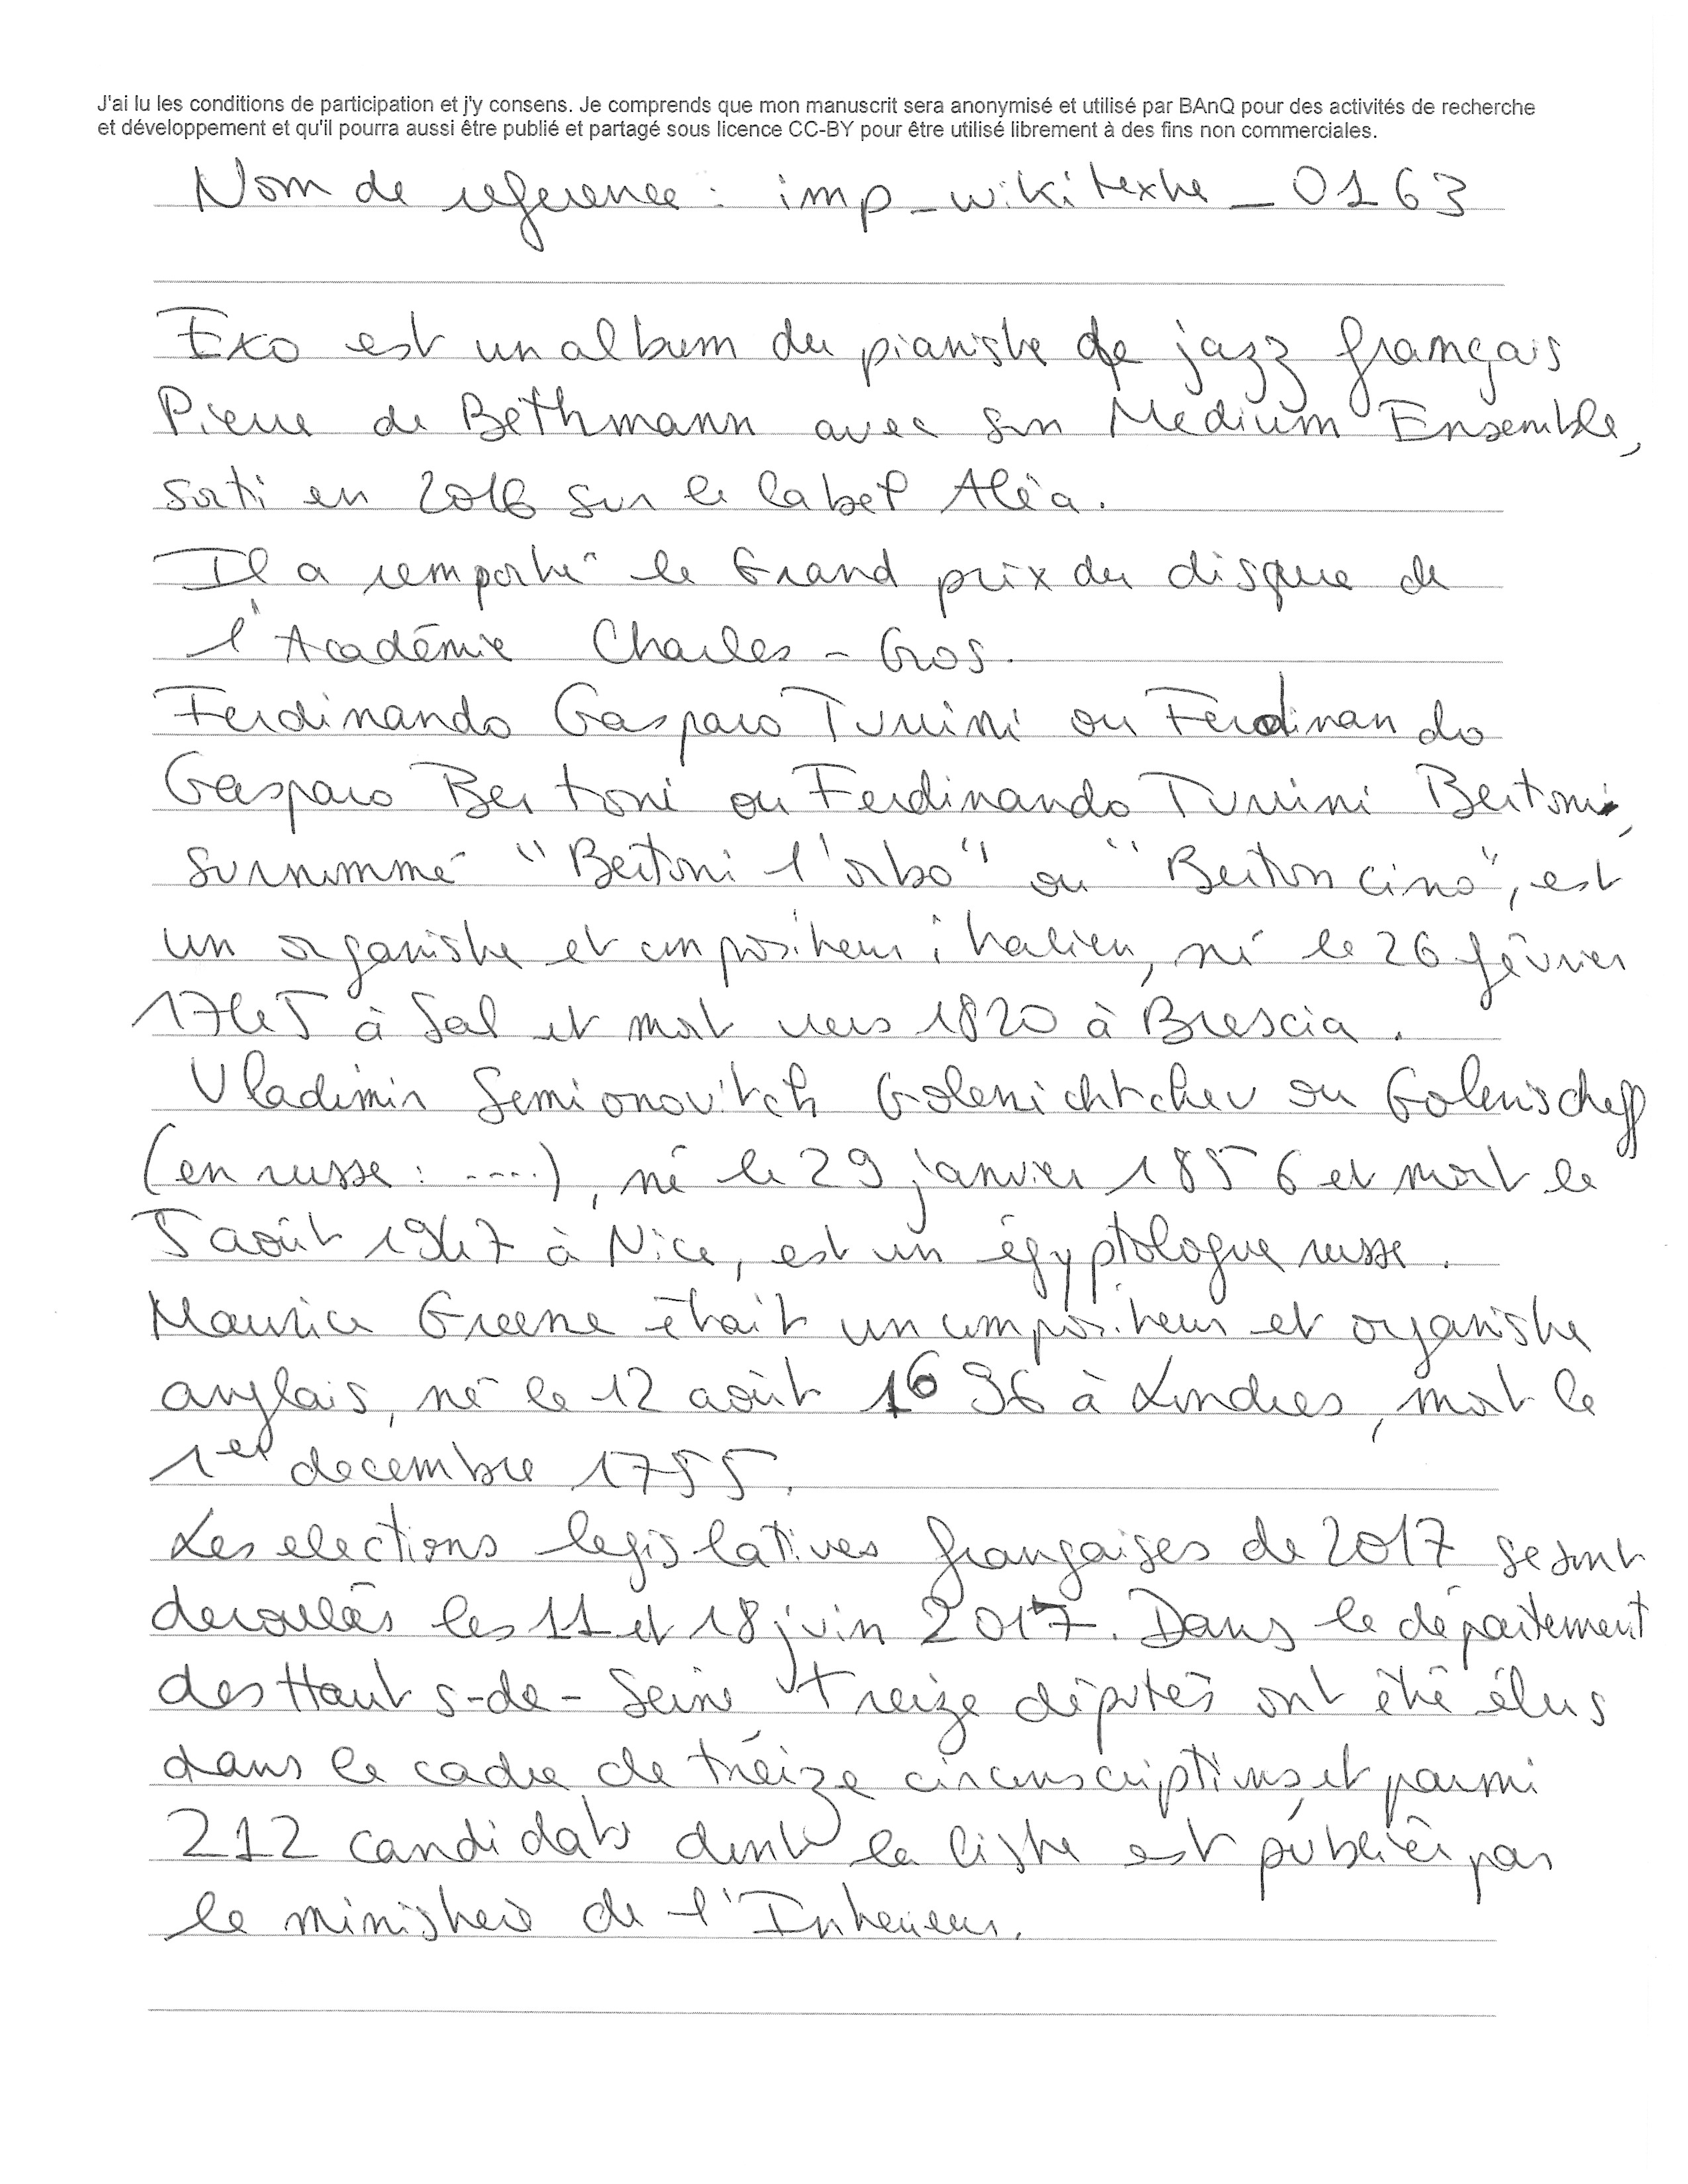 J'ai lu les conditions de participation et j'y consens. Je comprends que mon manuscrit sera anonymisé et utilisé par BAnQ pour des activités de recherche
et développement et qu'il pourra aussi être publié et partagé sous licence CC-BY pour être utilisé librement à des fins non commerciales.
Nom de reference : imp_wikitexte_0163
Exo est un album du pianiste de jazz français
Pierre de Bethmann avec son Medium Ensemble,
sorti en 2016 sur le label Aléa.
Il a remporté le Grand prix du disque de
l'Académie Charles-Cros.
Ferdinando Gasparo Turrini ou Ferdinando
Gasparo Bertoni ou Ferdinando Turrini Bertoni,
surnommé "Bertoni l'orbo" ou "Bertoncino", est
un organiste et compositeur italien, né le 26 février
1745 à Salò et mort vers 1820 à Brescia.
Vladimir Semionovitch Golenichtchev ou Golenischeff
(en russe : ....), né le 29 janvier 1856 et mort le
5 août 1947 à Nice, est un égyptologue russe.
Maurice Greene était un compositeur et organiste
anglais, né le 12 août 1696 à Londres, mort le
1er decembre 1755.
Les elections legislatives françaises de 2017 se sont
deroulés les 11 et 18 juin 2017. Dans le département
des Hauts-de-Seine, treize députés ont été élus
dans le cadre de treize circonscriptions, et parmi
212 candidats dont la liste est publiée par
le ministère de l'Interieur.